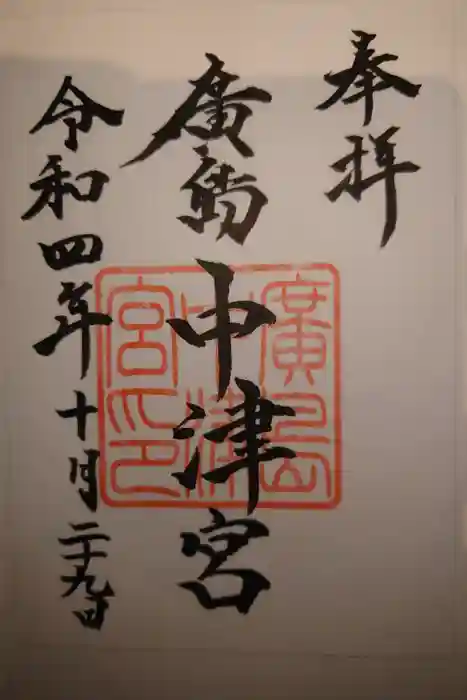 奉拝
廣島中津宮
令和四年十月二十九日
廣島中津宮印